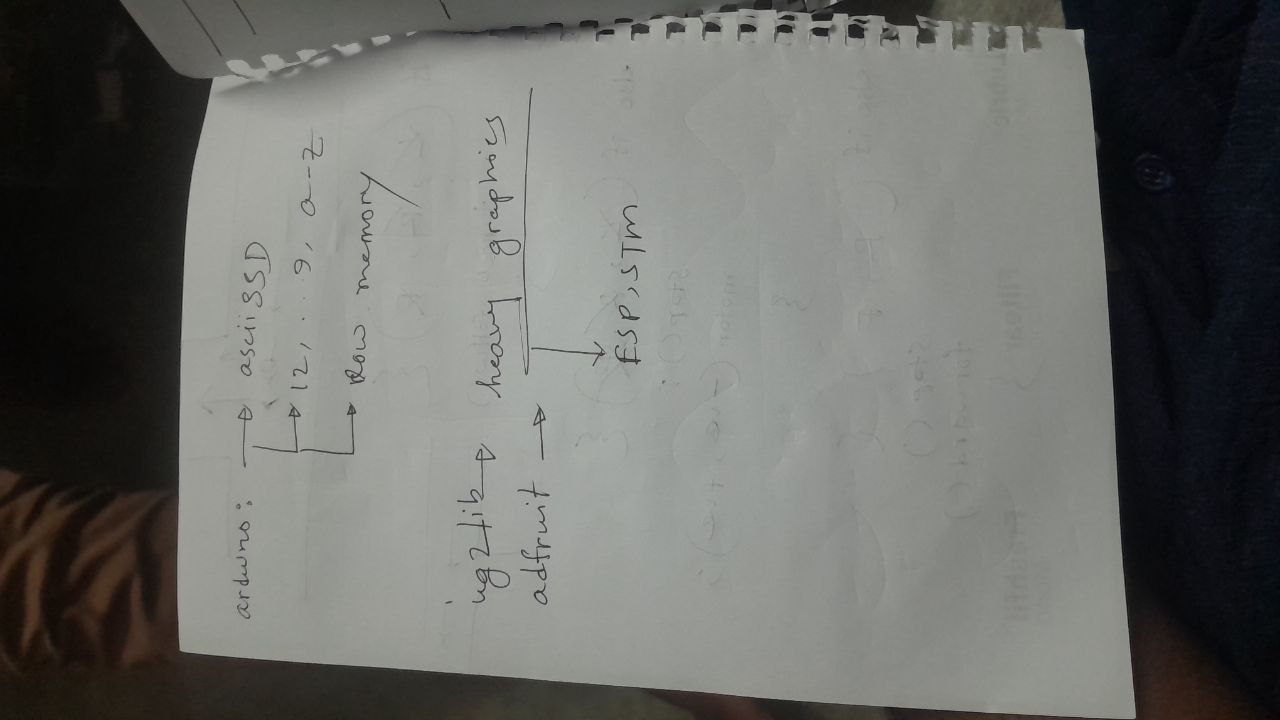 arduino: → ascii SSD
→ 12, . . 9, a--z
→ low memory
ug2lib → heavy graphics
adfruit →
→ ESP, STM